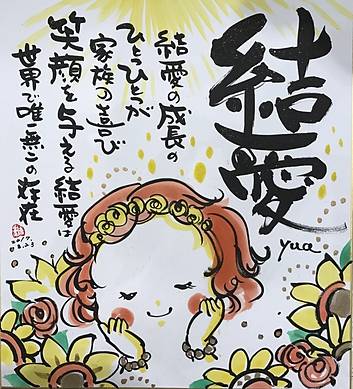 結愛
yua
結愛の成長の
ひとつひとつが
家族の喜び
笑顔を与える結愛は
世界で唯一無二の存在